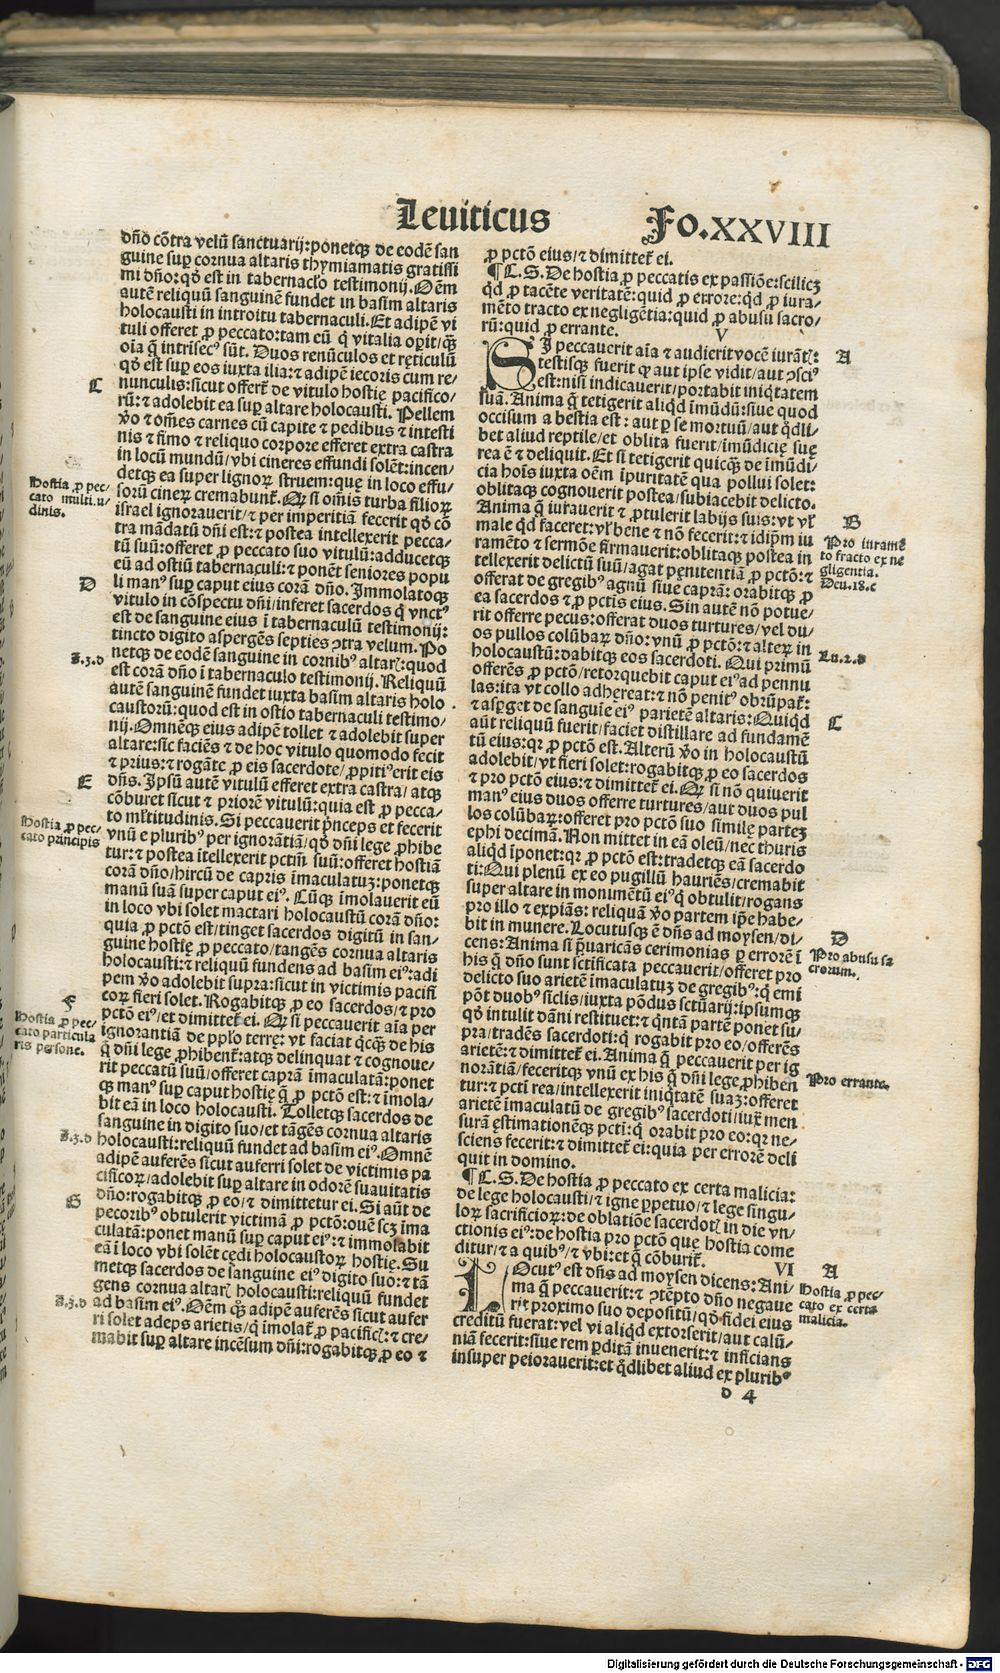 Leuiticus
Fo.XXVIII
dño cõtra velũ sanctuarij: ponetqꝫ de eodẽ san
guine suꝑ cornua altaris thymiamatis gratissi
mi dño: qð est in tabernacl̃o testimonij. Oẽm
autẽ reliquũ sanguinẽ fundet in basim altaris
holocausti in introitu tabernaculi. Et adipẽ vi
tuli offeret ꝓ peccato: tam eũ q̇ vitalia oꝑit/qꝫ̃
oĩa q̃ intrĩsecꝰ sũt. Duos renũculos et rẹticulũ
qð est suꝑ eos iuxta ilia: ⁊ adipẽ iecoris cum re-
C
nunculis: sicut offert̃ de vitulo hostię pacifico/
rũ: ⁊ adolebit ea suꝑ altare holocausti. Pellem
ṽo ⁊ oẽs carnes cũ capite ⁊ pedibus ⁊ intesti
nis ⁊ fimo ⁊ reliquo corpore efferet extra castra
in locũ mundũ/vbi cineres effundi solẽt: incen-
detqꝫ ea super lignoꝝ struem: quę in loco effu/
Hostia ꝓ pec-
cato multi.u-
dinis.
sorũ cineꝝ cremabunt̃. Qꝛ si om̃is turba filioꝝ
israel ignorauerit/⁊ per imperitiã fecerit qð cõ
tra mãdatũ dñi est: ⁊ postea intellexerit pecca-
tũ suũ: offeret ꝓ peccato suo vitulũ: adducetqꝫ
eũ ad ostiũ tabernaculi: ⁊ ponẽt seniores popu
D
li manꝰ suꝑ caput eius corã dño. Immolatoqꝫ
vitulo in cõspectu dñi/inferet sacerdos q̇ vnctꝰ
est de sanguine eius ĩ tabernaculũ testimonij:
tincto digito aspergẽs septies ↄtra velum. Po
netqꝫ de eodẽ sanguine in cornibꝰ altar̃: quod
J.3.d
est corã dño ĩ tabernaculo testimonij. Reliquũ
autẽ sanguinẽ fundet iuxta basim altaris holo
caustorũ: quod est in ostio tabernaculi testimo/
nij. Omnẽqꝫ eius adipẽ tollet ⁊ adolebit super
altare: sic faciẽs ⁊ de hoc vitulo quomodo fecit
⁊ prius: ⁊ rogãte ꝓ eis sacerdote/ꝓpitiꝰerit eis
E
dñs. Ipsũ autẽ vitulũ efferet extra castra/atqꝫ
cõburet sicut ⁊ priorẽ vitulũ: quia est ꝓ pecca-
to ml̃titudinis. Si peccauerit p̃nceps et fecerit
Hostia ꝓ pec-
cato principis
vnũ e pluribꝰ per ignorãtiã/qð dñi lege ꝓhibe
tur: ⁊ postea ĩtellexerit pctm̃ suũ: offeret hostiã
corã dño/hircũ de capris ĩmaculatũ: ponetqꝫ
manũ suã super caput eiꝰ. Cũqꝫ ĩmolauerit eũ
in loco vbi solet mactari holocaustũ corã dño:
quia ꝓ pctõ est/tinget sacerdos digitũ in san-
guine hostię ꝓ peccato/tangẽs cornua altaris
holocausti: ⁊ reliquũ fundens ad basim eiꝰ: adi
pem ṽo adolebit supra: sicut in victimis pacifi
F
coꝝ fieri solet. Rogabitqꝫ ꝓ eo sacerdos/⁊ pro
Hostia ꝓ pec/
cato particula
ris persone.
pctõ eiꝰ/et dimittet̃ ei. Qꝛ si peccauerit aĩa per
ignorantiã de ppl̃o terrę: vt faciat q̇cqꝫ de his
q̃ dñi lege ꝓhibent̃: atqꝫ delinquat ⁊ cognoue-
rit peccatũ suũ/offeret caprã ĩmaculatã: ponet
qꝫ manꝰ suꝑ caput hostię q̃ ꝓ pctõ est: ⁊ ĩmola-
bit eã in loco holocausti. Tolletqꝫ sacerdos de
sanguine in digito suo/et tãgẽs cornua altaris
J.3.d
holocausti: reliquũ fundet ad basim eiꝰ. Omnẽ
adipẽ auferẽs sicut auferri solet de victimis pa
cificoꝝ/adolebit suꝑ altare in odorẽ suauitatis
G
dño: rogabitqꝫ ꝓ eo/⁊ dimittetur ei. Si aũt de
pecoribꝰ obtulerit victimã ꝓ pctõ: ouẽ scꝫ ĩma
culatã: ponet manũ suꝑ caput eiꝰ: ⁊ immolabit
eã ĩ loco vbi solẽt cędi holocaustoꝝ hostię. Su
metqꝫ sacerdos de sanguine eiꝰ digito suo: ⁊ tã
gens cornua altar̃ holocausti: reliquũ fundet
J.3.d
ad basim eiꝰ. Oẽm qꝫ̃ adipẽ auferẽs sicut aufer
ri solet adeps arietis/q̇ imolat̃ ꝓ pacific̃: ⁊ cre-
mabit suꝑ altare incẽsum dñi: rogabitqꝫ ꝓ eo ⁊
ꝓ pctõ eius/⁊ dimittet̃ ei.
¶C.S. De hostia ꝓ peccatis ex passiõe: scilicꝫ
q̇d ꝓ tacẽte veritatẽ: quid ꝓ errore: q̇d ꝓ iura-
mẽto tracto ex negligẽtia: quid ꝓ abusu sacro/
rũ: quid ꝓ errante.
V
A
SI peccauerit aĩa ⁊ audierit vocẽ iurãt̃:
testisqꝫ fuerit qꝛ aut ipse vidit/aut ↄsciꝰ
est: nisi indicauerit/portabit iniq̇tatem
suã. Anima q̃ tetigerit aliq̇d ĩmũdũ: siue quod
occisum a bestia est: aut ꝑ se mortuũ/aut q̇dli-
bet aliud reptile/et oblita fuerit/imũdicię suę
rea ẽ ⁊ deliquit. Et si tetigerit quicqꝫ de ĩmũdi-
cia hoĩs iuxta oẽm ĩpuritatẽ qua pollui solet:
oblitaqꝫ cognouerit postea/subiacebit delicto.
Anima q̃ iurauerit ⁊ ꝓtulerit labijs suis: vt vl̃
B
male q̇d faceret: vl̃ bene ⁊ nõ fecerit: ⁊ idip̃m iu
Pro iuramẽ
to fracto ex ne
gligentia.
Deu.18.c
ramẽto ⁊ sermõe firmauerit: oblitaqꝫ postea in
tellexerit delictũ suũ/agat pęnitentiã ꝓ pctõ: ⁊
offerat de gregibꝰ agnũ siue caprã: orabitqꝫ ꝓ
ea sacerdos ⁊ ꝓ pctis eius. Sin autẽ nõ potue-
rit offerre pecus: offerat duos turtures/vel du/
os pullos colũbaꝝ dño: vnũ ꝓ pctõ: ⁊ alteꝝ in
Lu.2.d
holocaustũ: dabitqꝫ eos sacerdoti. Qui primũ
offerẽs ꝓ pctõ/retorquebit caput eiꝰ ad pennu
las: ita vt collo adhereat: ⁊ nõ penitꝰ obrũpat̃:
C
⁊ asꝑget de sanguĩe eiꝰ parietẽ altaris: Quiq̇d
aũt reliquũ fuerit/faciet distillare ad fundamẽ
tũ eius: qꝛ ꝓ pctõ est. Alterũ ṽo in holocaustũ
adolebit/vt fieri solet: rogabitqꝫ ꝓ eo sacerdos
⁊ pro pctõ eius: ⁊ dimittet̃ ei. Qꝛ si nõ quiuerit
manꝰ eius duos offerre turtures/aut duos pul
los colũbaꝝ: offeret pro pctõ suo similę partez
ephi decimã. Non mittet in eã oleũ/nec thuris
aliq̇d ĩponet: qꝛ ꝓ pctõ est: tradetqꝫ eã sacerdo
ti: Qui plenũ ex eo pugillũ hauriẽs/cremabit
super altare in monumẽtũ eiꝰ q̇ obtulit/rogans
pro illo ⁊ expiãs: reliquã ṽo partem ip̃e habe-
bit in munere. Locutusqꝫ ẽ dñs ad moysen/di/
D
cens: Anima si p̃uaricãs cerimonias ꝑ errorẽ ĩ
Pro abusu sa
crorum.
his q̃ dño sunt sctificata peccauerit/offeret pro
delicto suo arietẽ ĩmaculatũ de gregibꝰ: q̇ emi
põt duobꝰ siclis/iuxta põdus sctũarij: ipsumqꝫ
qð intulit dãni restituet: ⁊ q̇ntã partẽ ponet su-
pra/tradẽs sacerdoti: q̇ rogabit pro eo/offerẽs
arietẽ: ⁊ dimittet̃ ei. Anima q̃ peccauerit per ig
norãtiã/feceritqꝫ vnũ ex his q̃ dñi lege ꝓhiben
Pro errante.
tur: ⁊ pcti rea/intellexerit iniq̇tatẽ suaꝫ: offeret
arietẽ ĩmaculatũ de gregibꝰ sacerdoti/iuxt̃ men
surã ęstimationẽqꝫ pcti: q̇ orabit pro eo: qꝛ ne-
sciens fecerit: ⁊ dimittet̃ ei: quia per errorẽ deli
quit in domino.
¶C.S. De hostia ꝓ peccato ex certa malicia:
de lege holocausti/⁊ igne ꝑpetuo/⁊ lege singu-
loꝝ sacrificioꝝ: de oblatiõe sacerdot̃ in die vn/
ctionis eiꝰ: de hostia pro pctõ quę hostia come
ditur/⁊ a quibꝰ/⁊ vbi: et q̃ cõburit̃.
VI
A
LOcutꝰ est dñs ad moysen dicens: Ani-
Hostia ꝓ pec-
cato ex certa
malicia.
ma q̃ peccauerit: ⁊ ↄtẽpto dño negaue
rit proximo suo depositũ/qð fidei eius
creditũ fuerat: vel vi aliq̇d extorserit/aut calũ/
niã fecerit: siue rem ꝑditã inuenerit: ⁊ inficians
insuper peiorauerit: et q̇dlibet aliud ex pluribꝰ
d 4
Digitalisierung gefördert durch die Deutsche Forschungsgemeinschaft - DFG